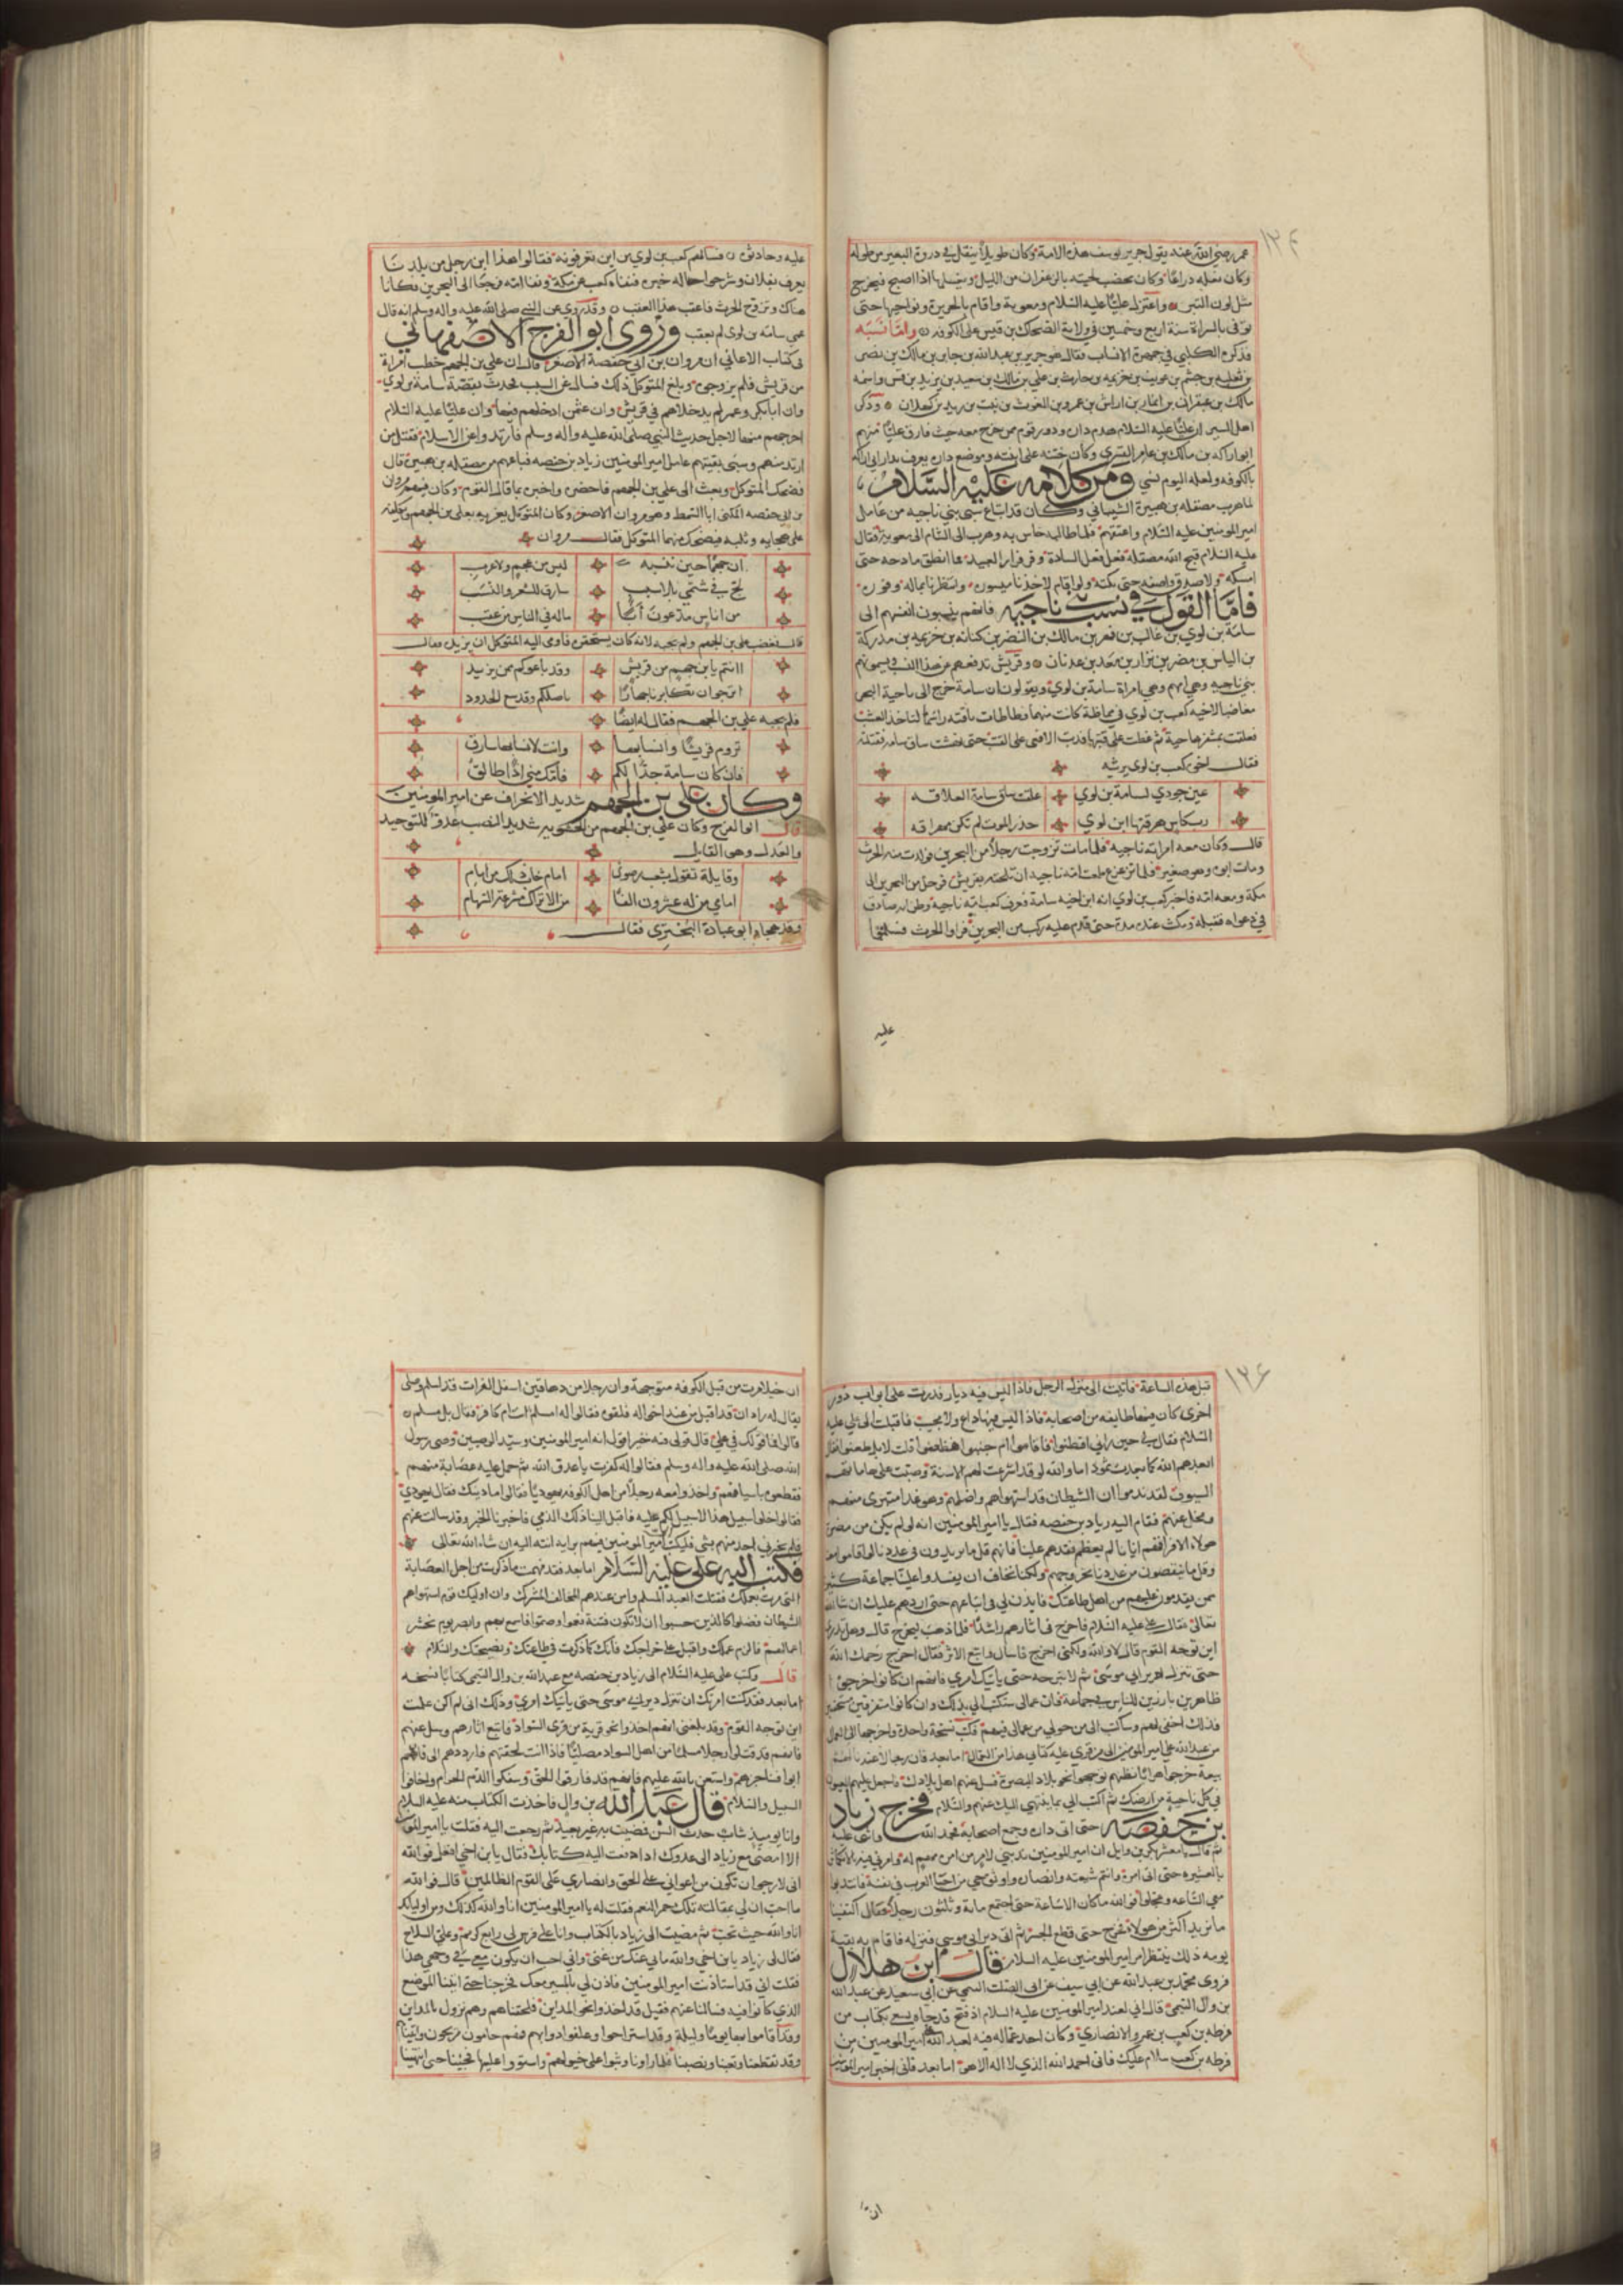 ١٢٤
عمر رضي الله عنه يقول جرير يوسف هذه الامة وكان طويلا يتفل في ذروة البعير من طوله
وكان نعله ذراعا وكان يخضب لحيته بالزعفران من الليل ويغسلها اذا اصبح فيخرج
مثل لون التبر واعتزل عليا عليه السلام ومعوية واقام بالجزيرة ونواحيها حتى
توفى بالسراة سنة اربع وخمسين في ولاية الضحاك بن قيس على الكوفه واما نسبه
فذكره الكلبي في جمهرة الانساب فقال هو جرير بن عبد الله بن جابر بن مالك بن نصر
بن ثعلبه بن جشم بن عويف بن خزيمه بن حارث بن علي بن مالك بن سعيد بن يزيد بن قسر واسمه
مالك بن عبقر بن انمار بن اراش بن عمرو بن الغوث بن نبت بن زيد بن كهلان وذكر
اهل السير ان عليا عليه السلام هدم دار جرير ودور قوم ممن خرج معه حيث فارق عليا منهم
ابو اراكه بن مالك بن عامر القسري وكان ختنه على ابنته وموضع داره يعرف بدار ابي اراكه
بالكوفه ولعله اليوم نسي ومن كلامه عليه السلام
لما هرب مصقله بن هبيرة الشيباني وكان قد ابتاع سبي بني ناجيه من عامل
امير المومنين عليه السلام واعتقهم فلما طالبه خاس به وهرب الى الشام الى معوية فقال
عليه السلام قبح الله مصقله فعل فعل السادة وفر فرار العبيد فما انطق مادحه حتى
اسكته ولا صدق واصفه حتى بكته ولو اقام لاخذنا ميسوره وانتظرنا بماله وفوره
فاما القول في نسب بني ناجيه فانهم ينسبون انفسهم الى
سامة بن لوي بن غالب بن فهر بن مالك بن النضر بن كنانه بن خزيمه بن مدركة
بن الياس بن مضر بن نزار بن معد بن عدنان وقريش تدفعهم عن هذا النسب ويسمونهم
بني ناجيه وهي امهم وهي امراة سامة بن لوي ويقولون ان سامة خرج الى ناحية البحر
مغاضبا لاخيه كعب بن لوي في مماظة كانت بينهما فطاطات ناقته راسها لتاخذ العشب
فعلقت بمشفرها حية ثم عطفت على قتبها فدب الافعى على القتب حتى نهشت ساق سامه فقتلته
فقال اخوه كعب بن لوي يرثيه
عين جودي لسامة بن لوي علقت ساق سامة العلاقه
رب كاس هرقتها ابن لوي حذر الموت لم تكن مهراقه
قال وكان معه امراته ناجيه فلما مات تزوجت رجلا من البحرين فولدت منه الحرث
ومات ابوه وهو صغير فلما ترعرع طمعت امه ناجيه ان تلحقه بقريش فرحل من البحرين الى
مكة ومعه امه فاخبر كعب بن لوي انه ابن اخيه سامة فعرف كعب امه ناجية وظن انه صادق
في دعواه فقبله ومكث عنده مدة حتى قدم عليه ركب من البحرين فراوا الحرث فسلموا
عليه
عليه وحادثوه فسالهم كعب بن لوي من اين تعرفونه فقالوا هذا ابن رجل من بلدنا
يعرف بفلان وشرحوا حاله خبره فنفاه كعب عن مكة ونفا امه فرجعا الى البحرين فكانا
هناك وتزوج الحرث فاعقب هذا العقب وقد روي عن النبي صلى الله عليه واله وسلم انه قال
عمي سامه بن لوي لم يعقب وروى ابو الفرج الاصفهاني
في كتاب الاغاني ان مروان بن ابي حفصة الاصغر قال ان علي بن الجهم خطب امراة
من قريش فلم يزوجوه وبلغ المتوكل ذلك فسال عن السبب فحدث بقصة سامة بن لوي
وان ابا بكر وعمر لم يدخلاهم في قريش وان عثمن ادخلهم فيها وان عليا عليه السلام
اخرجهم منها لاجل حديث النبي صلى الله عليه واله وسلم فارتدوا عن الاسلام فقتل من
ارتد منهم وسبى بقيتهم عامل امير المومنين زياد بن حفصه فباعهم من مصقله بن هبيرة قال
فضحك المتوكل وبعث الى علي بن الجهم فاحضره واخبره بما قال القوم وكان فيهم مروان
بن ابي حفصه المكنى ابا السمط وهو مروان الاصغر وكان المتوكل يغريه بعلي بن الجهم
على هجايه وثلبه فيضحك منهما المتوكل فقال مروان
ان جهما حين تنسبه ليس من عجم ولا عرب
لج في شتمي بلا سبب سارق للشعر والنسب
من اناس يدعون ابا ماله في الناس من عقب
قال فغضب علي بن الجهم ولم يجبه لانه كان يستحقره فاومى اليه المتوكل ان يزيده فقال
اانتم يابن جهم من قريش وقد باعوكم ممن يزيد
اترجوا ان تكابرنا جهارا باصلكم وقد بيع الجدود
فلم يجبه علي بن الجهم فقال له ايضا
تروم قريشا وانسابها وانت لانسابها سارق
فان كان سامة جدا لكم فامك مني اذا طالق
وكان علي بن الجهم شديد الانحراف عن امير المومنين
قال ابو الفرج وكان علي بن الجهم من الحشويه شديد النصب عدوا للتوحيد
والعدل وهو القايل
وقايلة تقول بشعب رضوى امام خاب ذلك من امام
امامي من له عشرون الفا من الاتراك مشرعة السهام
وقد هجاه ابو عبادة البحتري فقال
١٢٦
قبل هذه الساعة فاتيت الى منزل الرجل فاذا ليس فيه ديار فدرت على ابواب دور
اخرى كان فيها طايفه من اصحابه فاذا ليس فيها داع ولا مجيب فاقبلت الى علي عليه
السلام فقال لي حين راني اقطنوا فاقاموا ام جبنوا فظعنوا قلت لا بل ظعنوا فقال
ابعدهم الله كما بعدت ثمود اما والله لو قد اشرعت لهم الاسنة وصبت على هاماتهم
السيوف لقد ندموا ان الشيطان قد استهواهم واضلهم وهو غدا متبرئ منهم
ومخل عنهم فقام اليه زياد بن حفصه فقال يا امير المومنين انه لو لم يكن من مضرة
هولاء الا فراقهم ايانا لم يعظم فقدهم علينا فانهم قل ما يزيدون في عددنا لو اقاموا معنا
وقل ما ينقصون من عددنا بخروجهم ولكنا نخاف ان يفسدوا علينا جماعة كثيرة
ممن يقدمون عليهم من اهل طاعتك فايذن لي في اتباعهم حتى اردهم عليك ان شا الله
تعالى فقال علي عليه السلام فاخرج في اثارهم راشدا فلما ذهب ليخرج قال وهل تدري
اين توجه القوم قال لا والله ولكني اخرج فاسال واتبع الاثر فقال اخرج رحمك الله
حتى تنزل دير ابي موسى ثم لا تبرحه حتى ياتيك امري فانهم ان كانوا خرجوا
ظاهرين بارزين للناس في جماعة فان عمالي ستكتب الي بذلك وان كانوا متفرقين مستخفين
فذلك اخفى لهم وساكتب الى من حولي من عمالي فيهم فكتب نسخة واحدة واخرجها الى العمال
من عبد الله علي امير المومنين الى من قري عليه كتابي هذا من العمال اما بعد فان رجالا عندنا لهم
بيعة خرجوا هرابا نظنهم توجهوا نحو بلاد البصرة فسل عنهم اهل بلادك واجعل عليهم العيون
في كل ناحية من ارضك ثم اكتب الي بما ينتهي اليك عنهم والسلام فخرج زياد
بن حفصه حتى اتى داره وجمع اصحابه فحمد الله واثنى عليه
ثم قال يا معشر بكر بن وايل ان امير المومنين ندبني لامر من امره مهم له وامرني فيه بالانكماش
بالعشيره حتى اتى امره وانتم شيعته وانصاره واوثق حي من احياء العرب في نفسه فانتدبوا
معي الساعه وعجلوا فو الله ما كان الا ساعة حتى اجتمع ماية وثلثون رجلا فقال اكتفينا
ما نريد اكثر من هولاء فخرج حتى قطع الجسر ثم اتى دير ابي موسى فنزله فاقام به بقية
يومه ذلك ينتظر امر امير المومنين عليه السلام قال ابن هلال
فروى محمد بن عبد الله عن ابن ابي سيف عن ابي الصلت التيمي عن ابي سعيد عن عبد الله
بن وال التيمي قال اني لعند امير المومنين عليه السلام اذ فيج قد جاه يسعى بكتاب من
قرظه بن كعب بن عمرو الانصاري وكان احد عماله فيه لعبد الله امير المومنين من
قرظه بن كعب سلام عليك فاني احمد الله الذي لا اله الا هو اما بعد فاني اخبر امير المومنين
ان
ان خيلا مرت من قبل الكوفه متوجهة وان رجلا من دهاقين اسفل الفرات قد اسلم وصلى
يقال له زاد ان قد اقبل من عند اخواله فلقوه فقالوا له امسلم انت ام كافر فقال بل مسلم
قالوا فما قولك في علي قال قولي فيه خير اقول انه امير المومنين وسيد الوصيين ووصي رسول
الله صلى الله عليه واله وسلم فقالوا له كفرت يا عدو الله ثم حمل عليه عصابة منهم
فقطعوه باسيافهم واخذوا معه رجلا من اهل الكوفه يهوديا فقالوا ما دينك فقال يهودي
فقالوا خلوا سبيل هذا لا سبيل لكم عليه فاقبل الينا ذلك الذمي فاخبرنا الخبر وقد سالت عنهم
فلم يخبرني احد منهم بشي فليكتب الي امير المومنين فيهم برايه انته اليه ان شاء الله تعالى
فكتب اليه علي عليه السلام اما بعد فقد فهمت ما ذكرت من اجل العصابة
التي مرت بعملك فقتلت العبد المسلم وامن عندهم المخالف المشرك وان اوليك قوم استهواهم
الشيطان فضلوا كالذين حسبوا ان لا تكون فتنة فعموا وصموا فاسمع بهم وابصر يوم تحشر
اعمالهم فالزم عملك واقبل على خراجك فانك كما ذكرت في طاعتك ونصيحتك والسلام
قال وكتب علي عليه السلام الى زياد بن حفصه مع عبد الله بن وال التيمي كتابا نسخته
اما بعد فقد كنت امرتك ان تنزل دير ابي موسى حتى ياتيك امري وذلك اني لم اكن علمت
اين توجه القوم وقد بلغني انهم اخذوا نحو قرية من قرى السواد فاتبع اثارهم وسل عنهم
فانهم قد قتلوا رجلا مسلما من اهل السواد مصليا فاذا انت لحقتهم فارددهم الي فان هم
ابوا فناجزهم واستعن بالله عليهم فانهم قد فارقوا الحق وسفكوا الدم الحرام واخافوا
السبيل والسلام قال عبد الله بن وال فاخذت الكتاب منه عليه السلام
وانا يوميذ شاب حدث السن فمضيت به غير بعيد ثم رجعت اليه فقلت يا امير المومنين
الا امضي مع زياد الى عدوك اذا دفعت اليه كتابك فقال يا ابن اخي افعل فو الله
اني لارجو ان تكون من اعواني على الحق وانصاري على القوم الظالمين قال فو الله
ما احب ان لي بمقالته تلك حمر النعم فقلت له يا امير المومنين انا والله كذلك ومن اوليك
انا والله حيث تحب ثم مضيت الى زياد بالكتاب وانا على فرس لي رايع كريم وعلي السلاح
فقال لي زياد يا ابن اخي والله ما بي عنك من غنى واني احب ان يكون معي في وجهي هذا
فقلت اني قد استاذنت امير المومنين فاذن لي بالمسير معك فخرجنا حتى اتينا الموضع
الذي كانوا فيه فسالنا عنهم فقيل قد اخذوا نحو المداين فلحقناهم وهم نزول بالمداين
وقد اقاموا بها يوما وليلة وقد استراحوا وعلفوا دوابهم فهم حامون مريحون واتينا
وقد تقطعنا وتعبنا ونصبنا فلما راونا وثبوا على خيولهم واستووا عليها فجينا حتى انتهينا